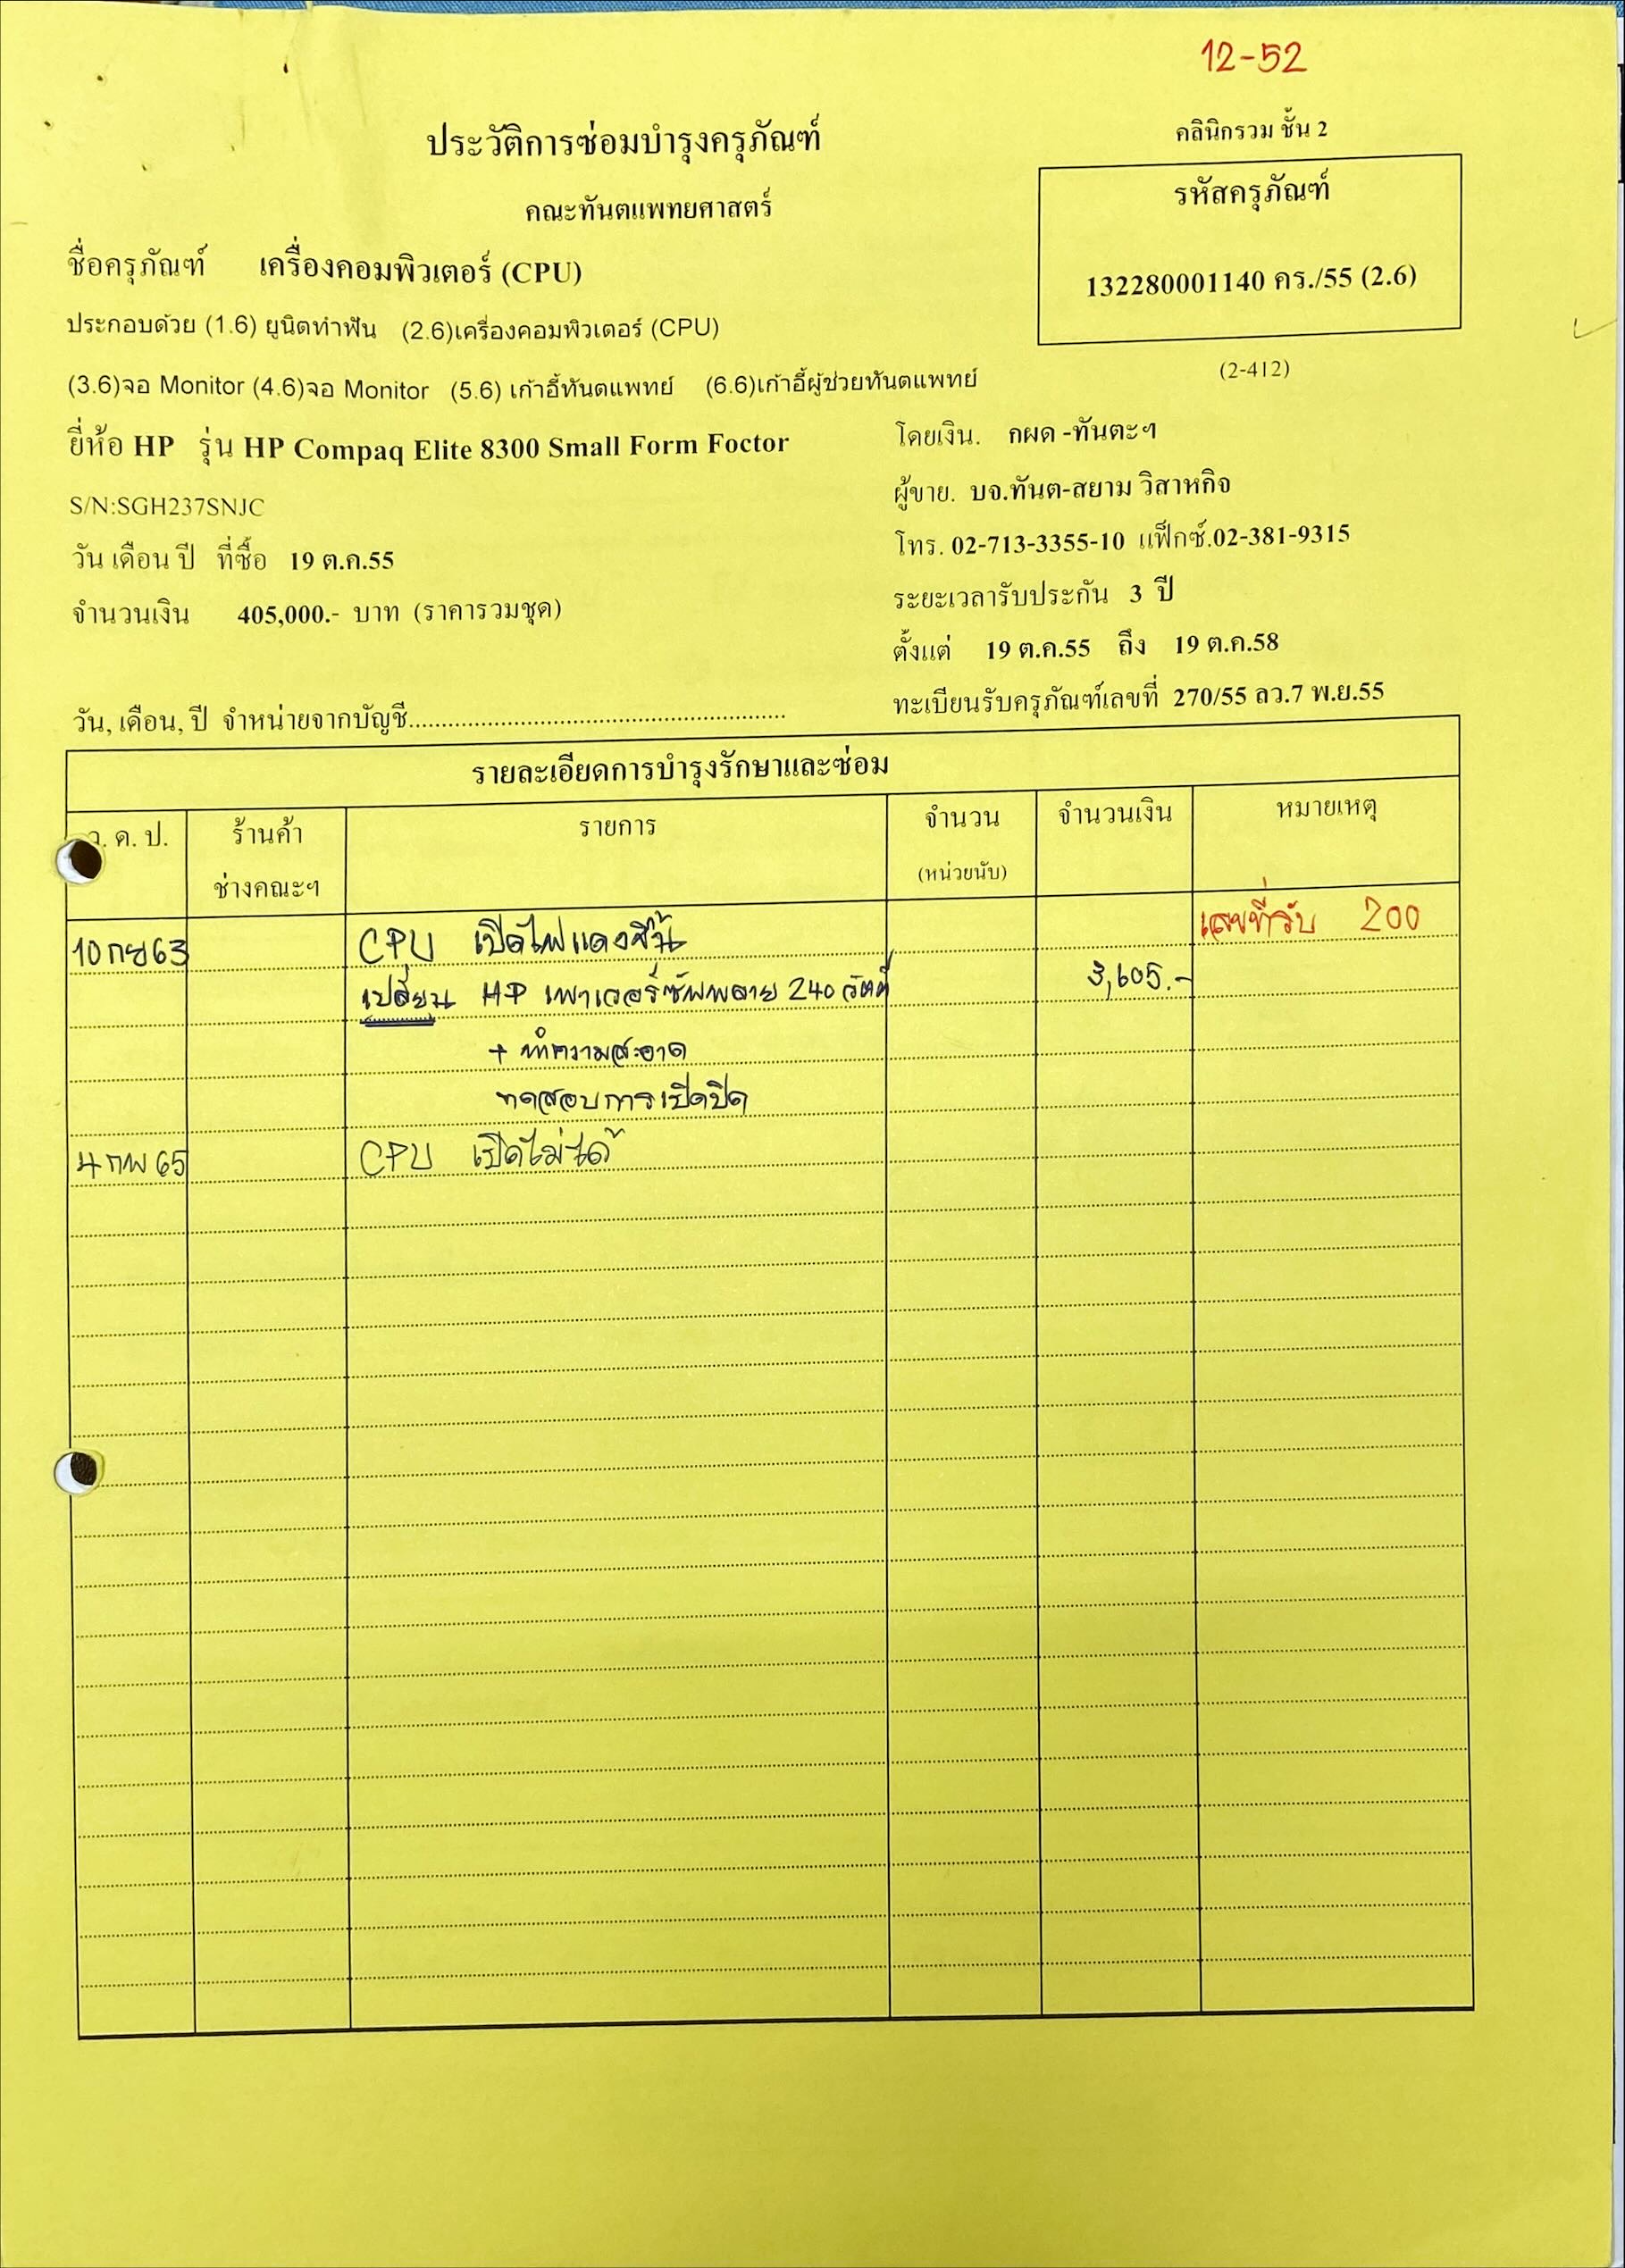 12-52
ประวัติการซ่อมบำรุงครุภัณฑ์
คลินิกรวม ชั้น 2
คณะทันตแพทยศาสตร์
รหัสครุภัณฑ์
132280001140 คร./55 (2.6)
(2-412)
ชื่อครุภัณฑ์ เครื่องคอมพิวเตอร์ (CPU)
ประกอบด้วย (1.6) ยูนิตทำฟัน (2.6)เครื่องคอมพิวเตอร์ (CPU)
(3.6)จอ Monitor (4.6)จอ Monitor (5.6) เก้าอี้ทันตแพทย์ (6.6)เก้าอี้ผู้ช่วยทันตแพทย์
ยี่ห้อ HP รุ่น HP Compaq Elite 8300 Small Form Foctor
โดยเงิน. กผด -ทันตะฯ
S/N:SGH237SNJC
ผู้ขาย. บจ.ทันต-สยาม วิสาหกิจ
วัน เดือน ปี ที่ซื้อ 19 ต.ค.55
โทร. 02-713-3355-10 แฟ็กซ์.02-381-9315
จำนวนเงิน 405,000.- บาท (ราคารวมชุด)
ระยะเวลารับประกัน 3 ปี
ตั้งแต่ 19 ต.ค.55 ถึง 19 ต.ค.58
วัน, เดือน, ปี จำหน่ายจากบัญชี..........................................................
ทะเบียนรับครุภัณฑ์เลขที่ 270/55 ลว.7 พ.ย.55
รายละเอียดการบำรุงรักษาและซ่อม
ว. ด. ป. ร้านค้า รายการ จำนวน จำนวนเงิน หมายเหตุ
ช่างคณะฯ (หน่วยนับ)
10 กย 63 CPU เปิดไฟแดงขึ้น เลขที่รับ 200
เปลี่ยน HP เพาเวอร์ซัพพลาย 240 วัตต์ 3,605.-
+ ทำความสะอาด
ทดสอบการเปิดปิด
4 กพ 65 CPU เปิดไม่ได้